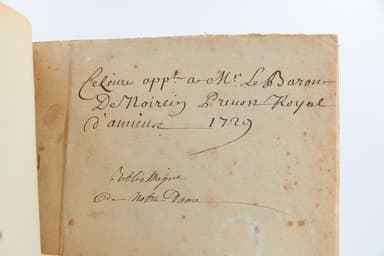 Ce livre appt. a Mr. Le Baron
De Noircin Prevost Royal
d'amiens 1729
Bibliotheque
de Notre Dame